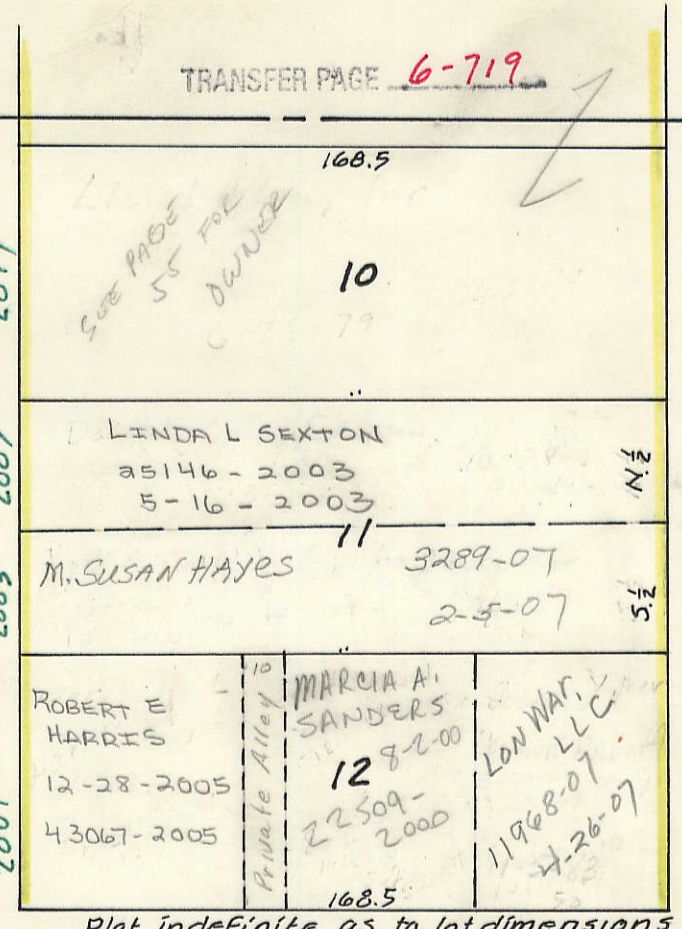 TRANSFER PAGE 6-719
168.5
SEE PAGE
55 FOR
OWNER
10
79
LINDA L SEXTON
25146 - 2003
5-16-2003
N.½
11
M. SUSAN HAYES
3289-07
2-5-07
S.½
ROBERT E
HARRIS
12-28-2005
43067-2005
10
Private Alley
MARCIA A.
SANDERS
8-2-00
12
22509-
2000
LON WAR,
LLC.
11968-07
4-26-07
168.5
Plat indefinite as to lot dimensions
2007
2003
2001